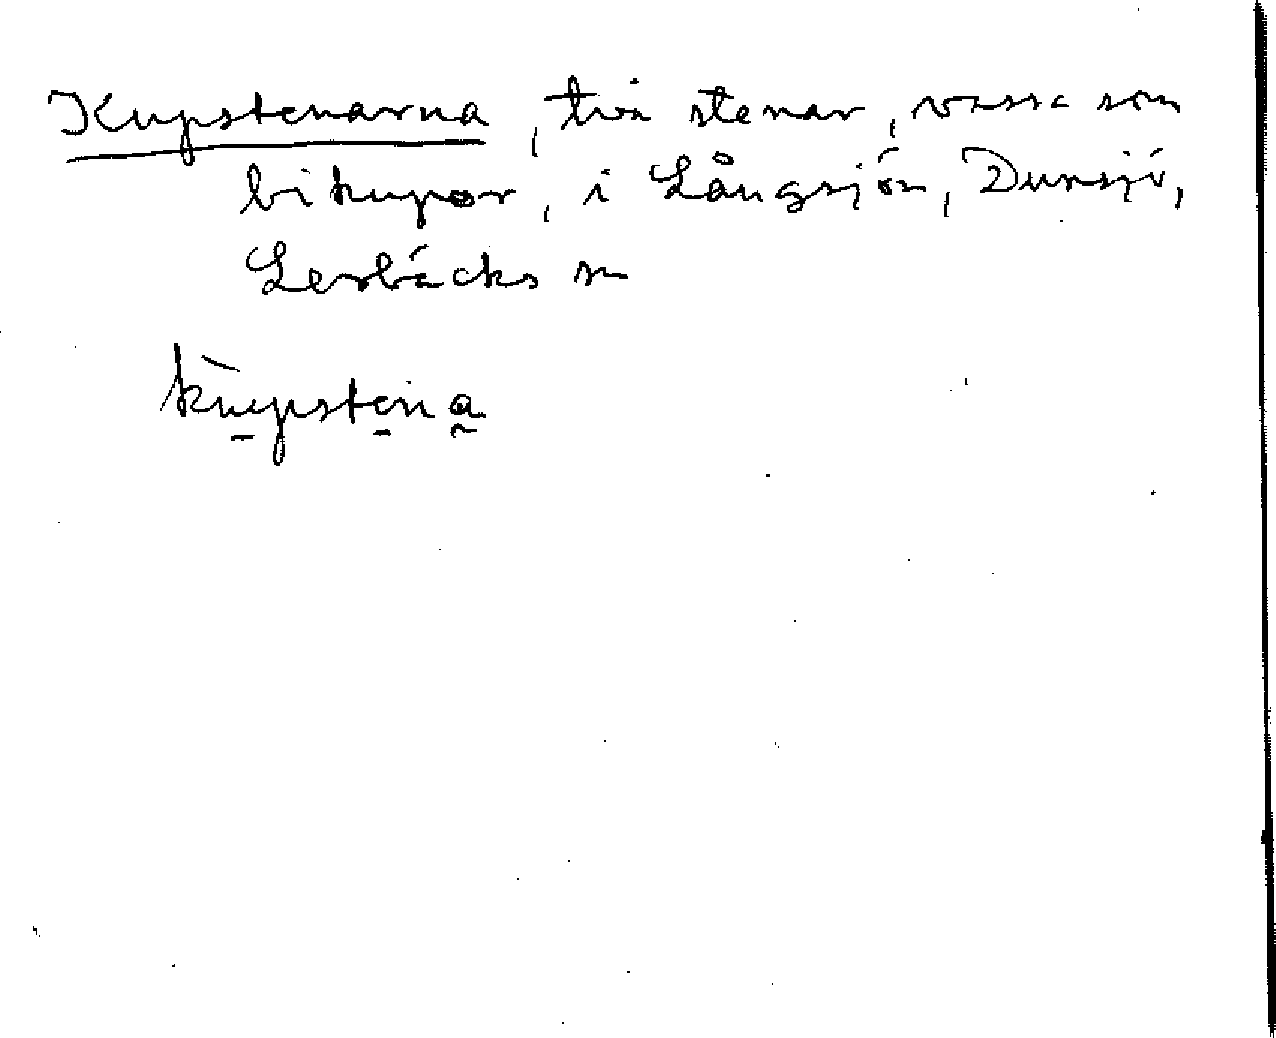 Kupstenarna, två stenar, vassa som
bikupor, i Långsjön, Dunsjö,
Lerbäcks sn
kùpstena